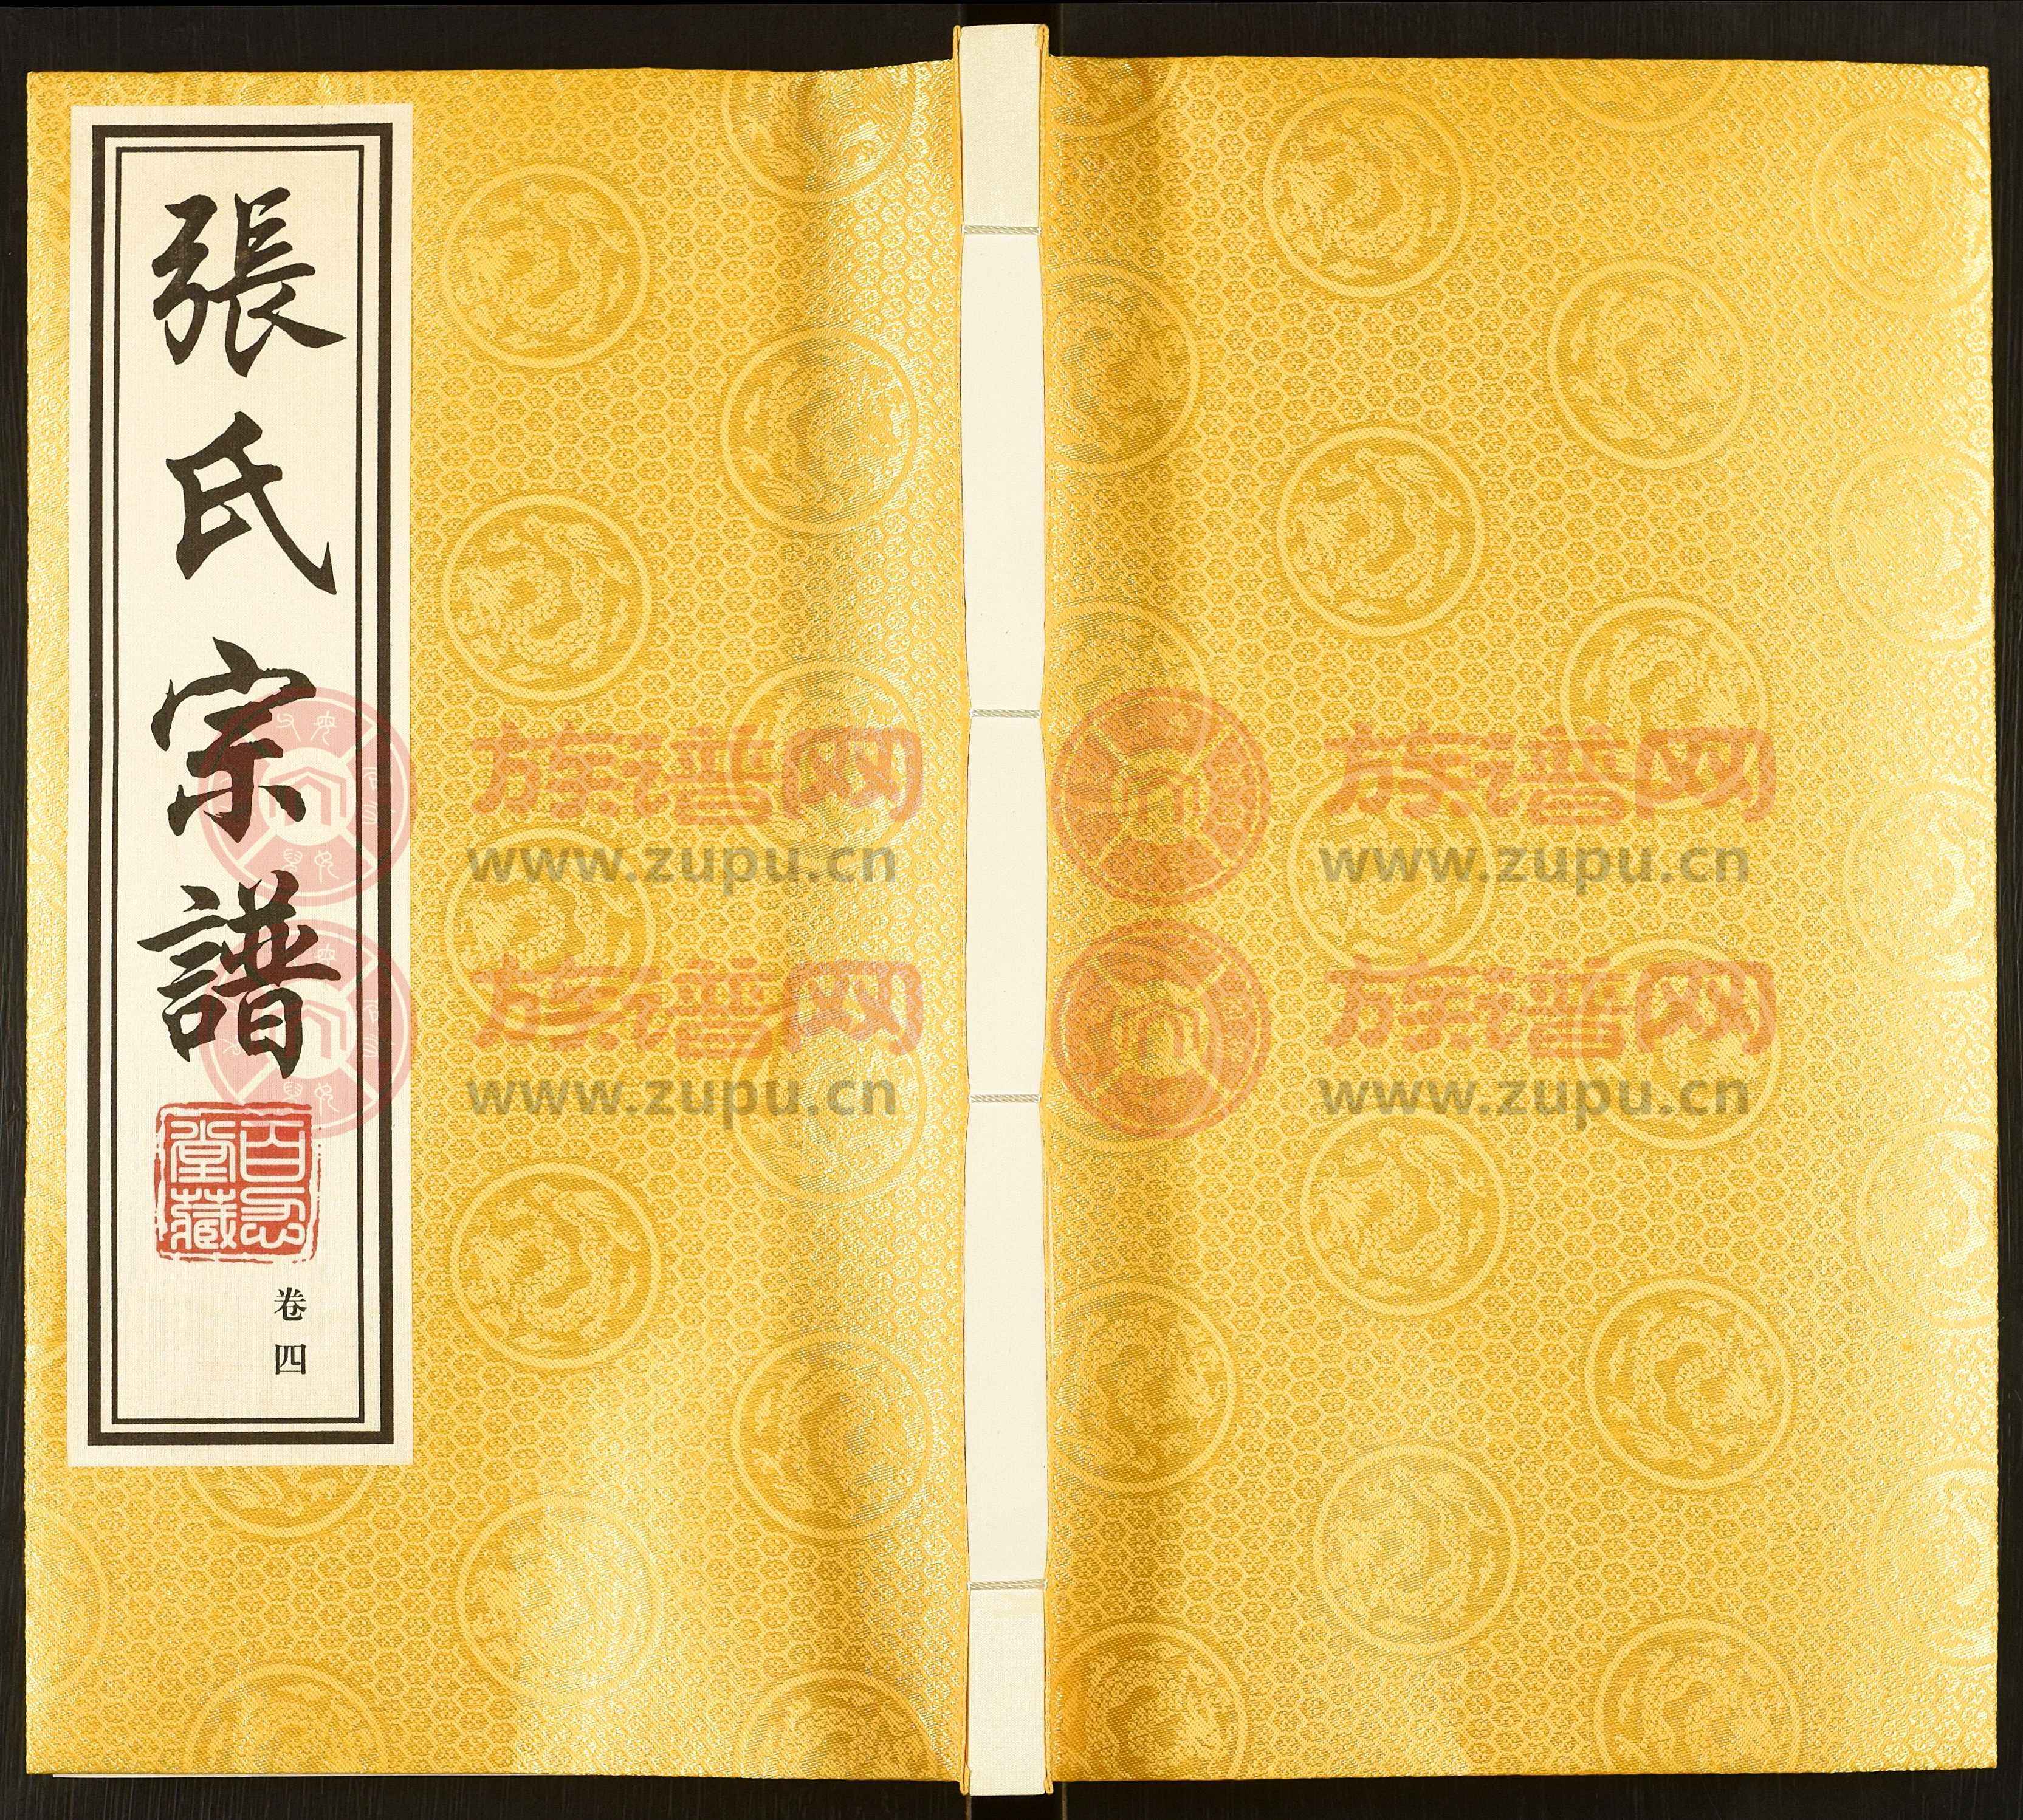 張氏宗譜
百忍堂藏
卷四
族谱网
www.zupu.cn
族谱网
www.zupu.cn
族谱网
www.zupu.cn
族谱网
www.zupu.cn